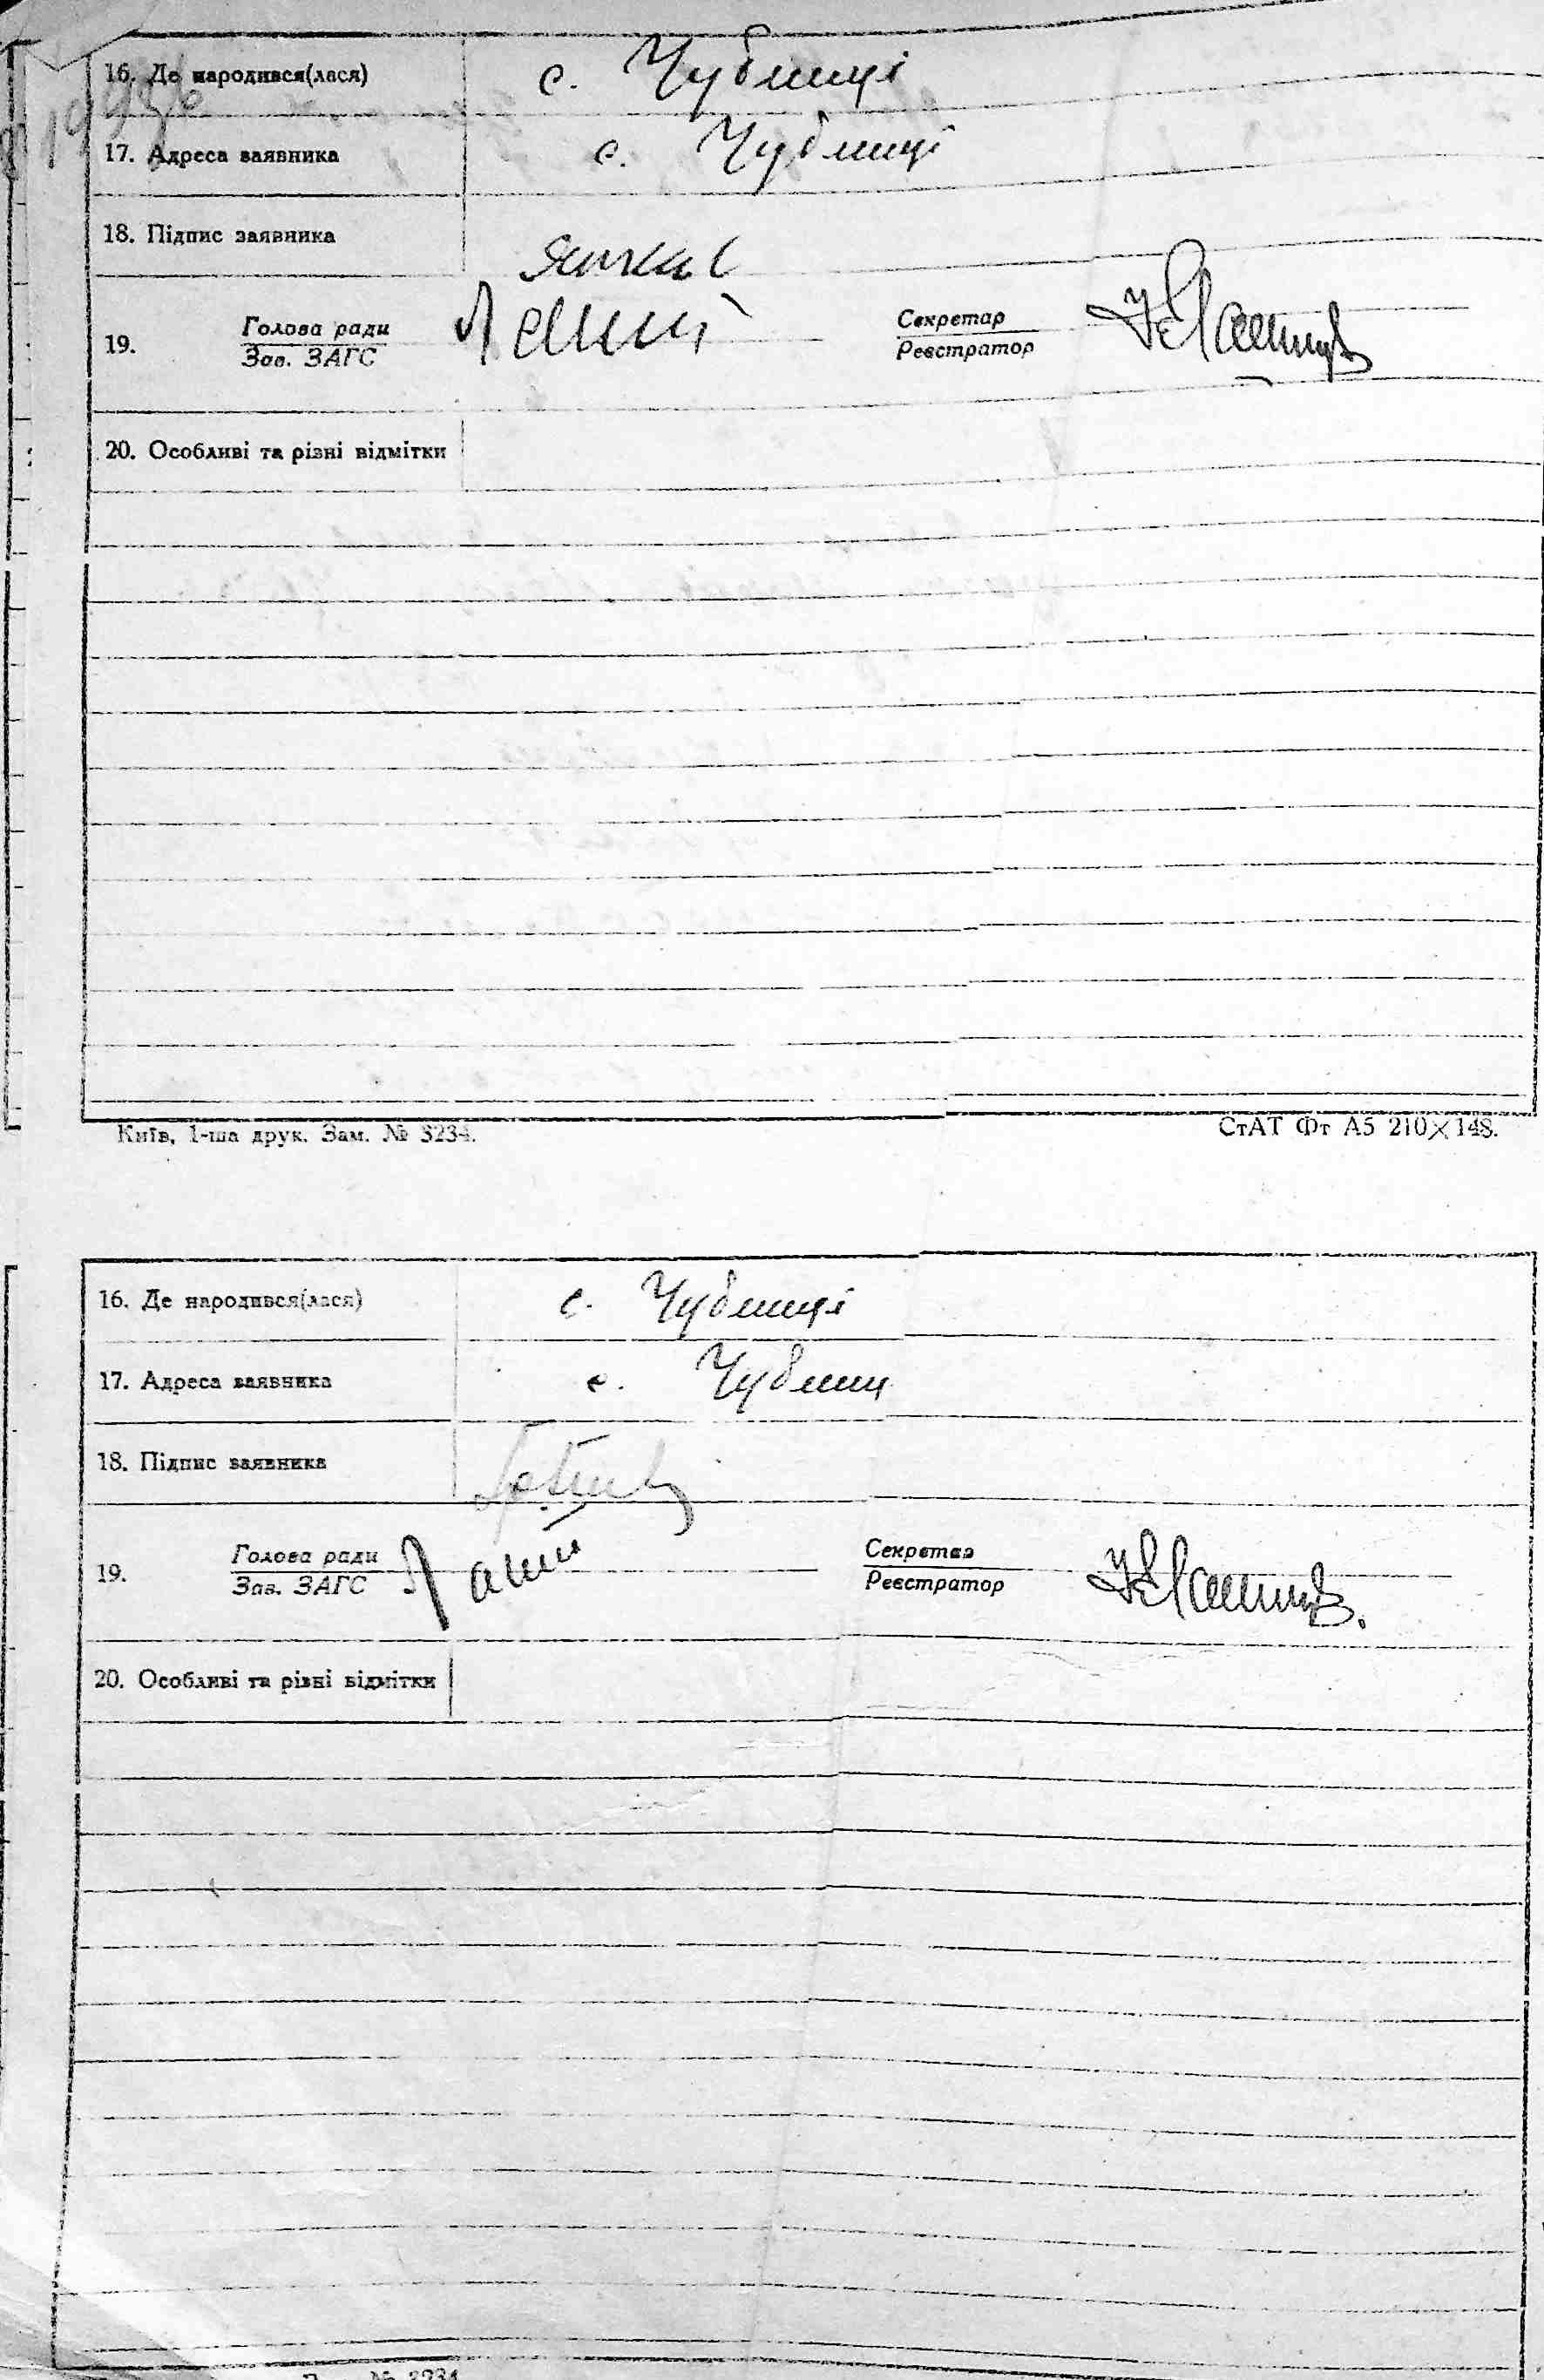 16. Де народився(лася) с. Чублиці
17. Адреса заявника с. Чублиці
18. Підпис заявника
19. Голова ради Секретар
Зав. ЗАГС Реєстратор
20. Особливі та різні відмітки
Київ, 1-ша друк. Зам. № 3234. СтАТ Фт А5 210×148.
16. Де народився(лася) с. Чублиці
17. Адреса заявника с.
18. Підпис заявника
19. Голова ради Секретар
Зав. ЗАГС Реєстратор
20. Особливі та різні відмітки
№ 3234